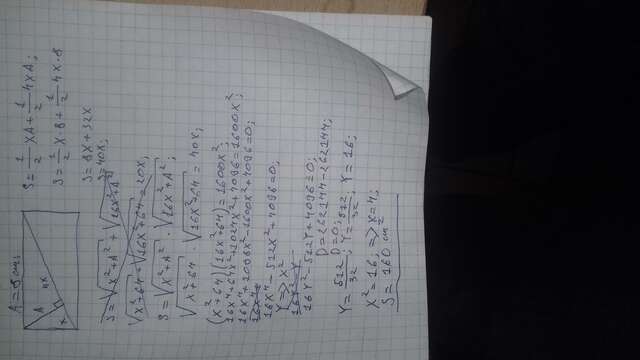 A = 8 cm;
A
4x
x
S = 1/2 XA + 1/2 4XA;
S = 1/2 X·8 + 1/2 4X·8
S = 8X + 32X
S = 40X;
S = √X²+A² + √16X²+A²
√X²+64 + √16X²+64 = 20X;
S = √X²+A² · √16X²+A²;
√X²+64 · √16X²+64 = 40X;
(X²+64)(16X²+64) = 1600X²;
16X⁴+64X²+1024X²+4096=1600X²;
16X⁴+1088X²-1600X²+4096=0;
16X⁴-512X²+4096=0;
Y => X²
16Y²-512Y+4096=0;
D=262144-262144;
D=0;
Y = 512/32; Y = 512/32; Y=16;
X²=16; => X=4;
S = 160 cm²